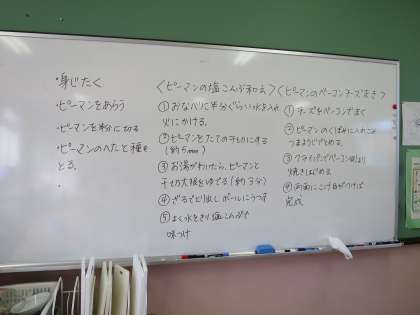 ・身じたく
・ピーマンをあらう
・ピーマンを粉に切る
・ピーマンのへたと種を
とる。
・
〈ピーマンの塩こんぶ和え〉
①おなべに半分ぐらい水を入れ
火にかける。
②ピーマンをたての千切りにする
(約5mm)
③お湯がわいたら、ピーマンと
千切大根をゆでる(約3分)
④ざるでとり出し ボールにうつす
⑤よく水をきり 塩こんぶで
味つけ
〈ピーマンのベーコンチーズまき〉
①チーズをベーコンでまく
②ピーマンのくぼみに入れこみ
つまようじでとめる。
③フライパンでベーコン側より
焼きはじめる
④両面にこげ目がつけば
完成